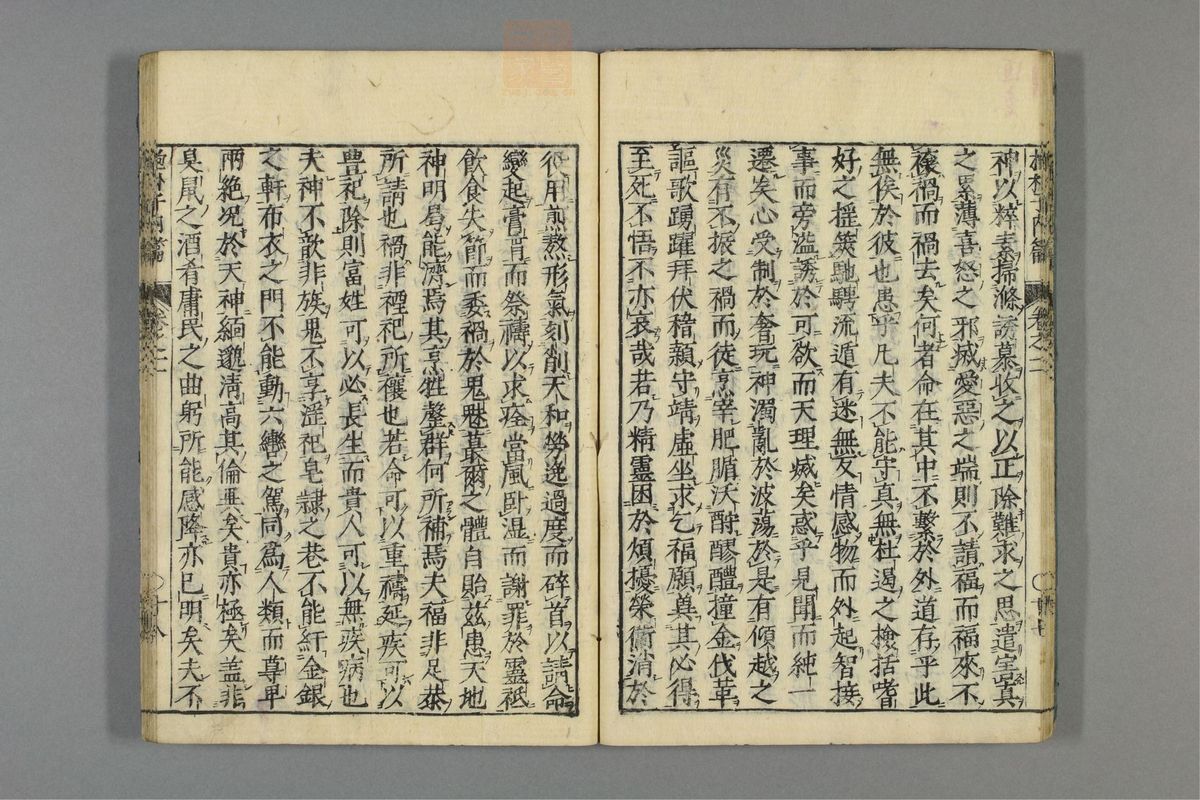 神以粹素掃滌誘慕收之以正除難求之思遣害真
之累薄喜怒之邪滅愛惡之端則不請福而福來不
禳禍而禍去矣何者命在其中不繫於外道存乎此
無俟於彼也患乎凡夫不能守真無杜遏之檢括嗜
好之搖奬馳騁流遁有迷無反情感物而外起智接
事而旁溢誘於可欲而天理滅矣惑乎見聞而純一
遷矣心受制於奢玩神濁亂於波蕩於是有傾越之
災有不振之禍而徒烹宰肥腯沃酹醪醴撞金伐革
謳歌踴躍拜伏稽顙守靖虛坐求乞福願冀其必得
至死不悟不亦哀哉若乃精靈困於煩擾榮衛消於
役用煎熬形氣刻削天和勞逸過度而碎首以請命
變起膏肓而祭禱以求痊當風臥濕而謝罪於靈祇
飲食失節而委禍於鬼魅蕞爾之體自貽茲患天地
神明曷能濟焉其烹牲罄群何所補焉夫福非足恭
所請也禍非禋祀所禳也若命可以重禱延疾可以
豊祀除則富姓可以必長生而貴人可以無疾病也
夫神不歆非族鬼不享淫祀皂隸之巷不能紆金銀
之軒布衣之門不能動六轡之駕同爲人類而尊卑
兩絶况於天神緬邈清高其倫異矣貴亦極矣盖非
臭鼠之酒肴庸民之曲躬所能感降亦已明矣夫不
抱朴子内篇 卷之二 〇 十八